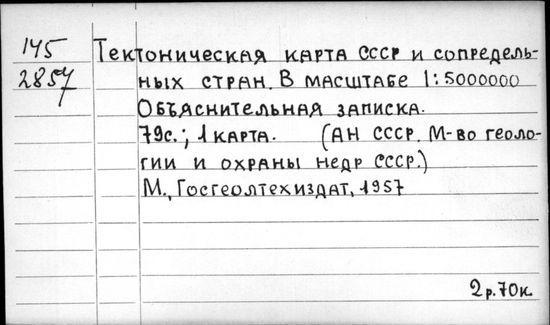 145 Тектоническая карта СССР и сопредель-
2857 ных стран. В масштабе 1:5000000
Объяснительная записка.
79с.; 1 карта. (АН СССР. М-во геоло-
гии и охраны недр СССР.)
М., Госгеолтехиздат, 1957
2р.70к.